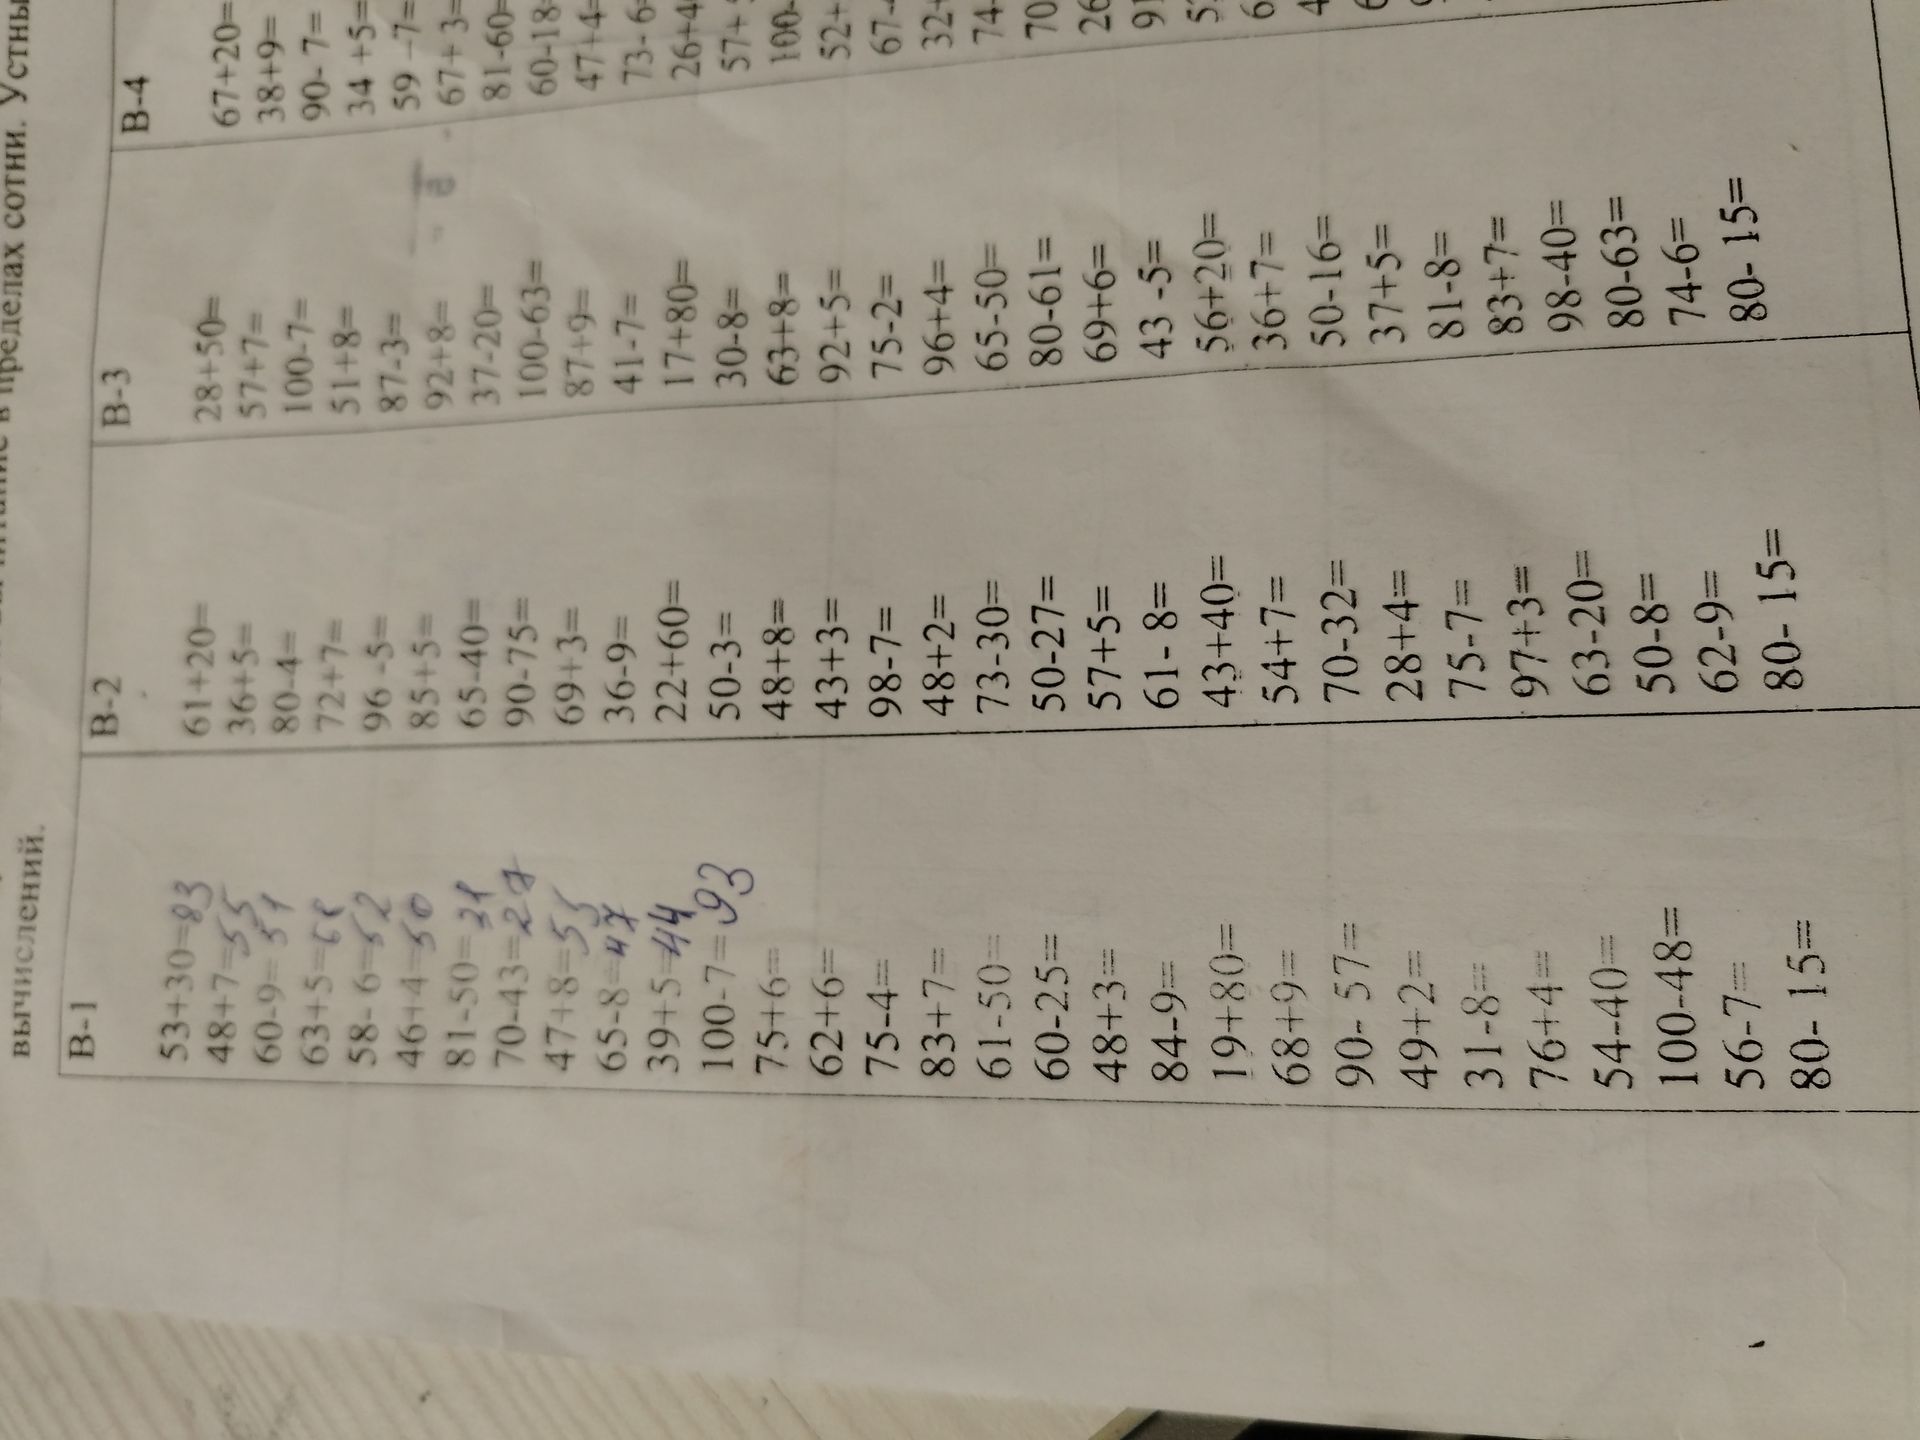 вычислений. Устны
В-1
53+30=83
48+7=55
60-9=51
63+5=68
58- 6=52
46+4=50
81-50=31
70-43=27
47+8=55
65-8=47
39+5=44
100-7=93
75+6=
62+6=
75-4=
83+7=
61-50=
60-25=
48+3=
84-9=
19+80=
68+9=
90- 57=
49+2=
31-8=
76+4=
54-40=
100-48=
56-7=
80- 15=
В-2
61+20=
36+5=
80-4=
72+7=
96 -5=
85+5=
65-40=
90-75=
69+3=
36-9=
22+60=
50-3=
48+8=
43+3=
98-7=
48+2=
73-30=
50-27=
57+5=
61- 8=
43+40=
54+7=
70-32=
28+4=
75-7=
97+3=
63-20=
50-8=
62-9=
80- 15=
В-3
28+50=
57+7=
100-7=
51+8=
87-3=
92+8=
37-20=
100-63=
87+9=
41-7=
17+80=
30-8=
63+8=
92+5=
75-2=
96+4=
65-50=
80-61=
69+6=
43 -5=
56+20=
36+7=
50-16=
37+5=
81-8=
83+7=
98-40=
80-63=
74-6=
80- 15=
В-4
67+20=
38+9=
90- 7=
34 +5=
59 -7=
67+ 3=
81-60=
60-18
47+4=
73- 6
26+4
57+
100-
52+
67-
32+
74-
70
26
91